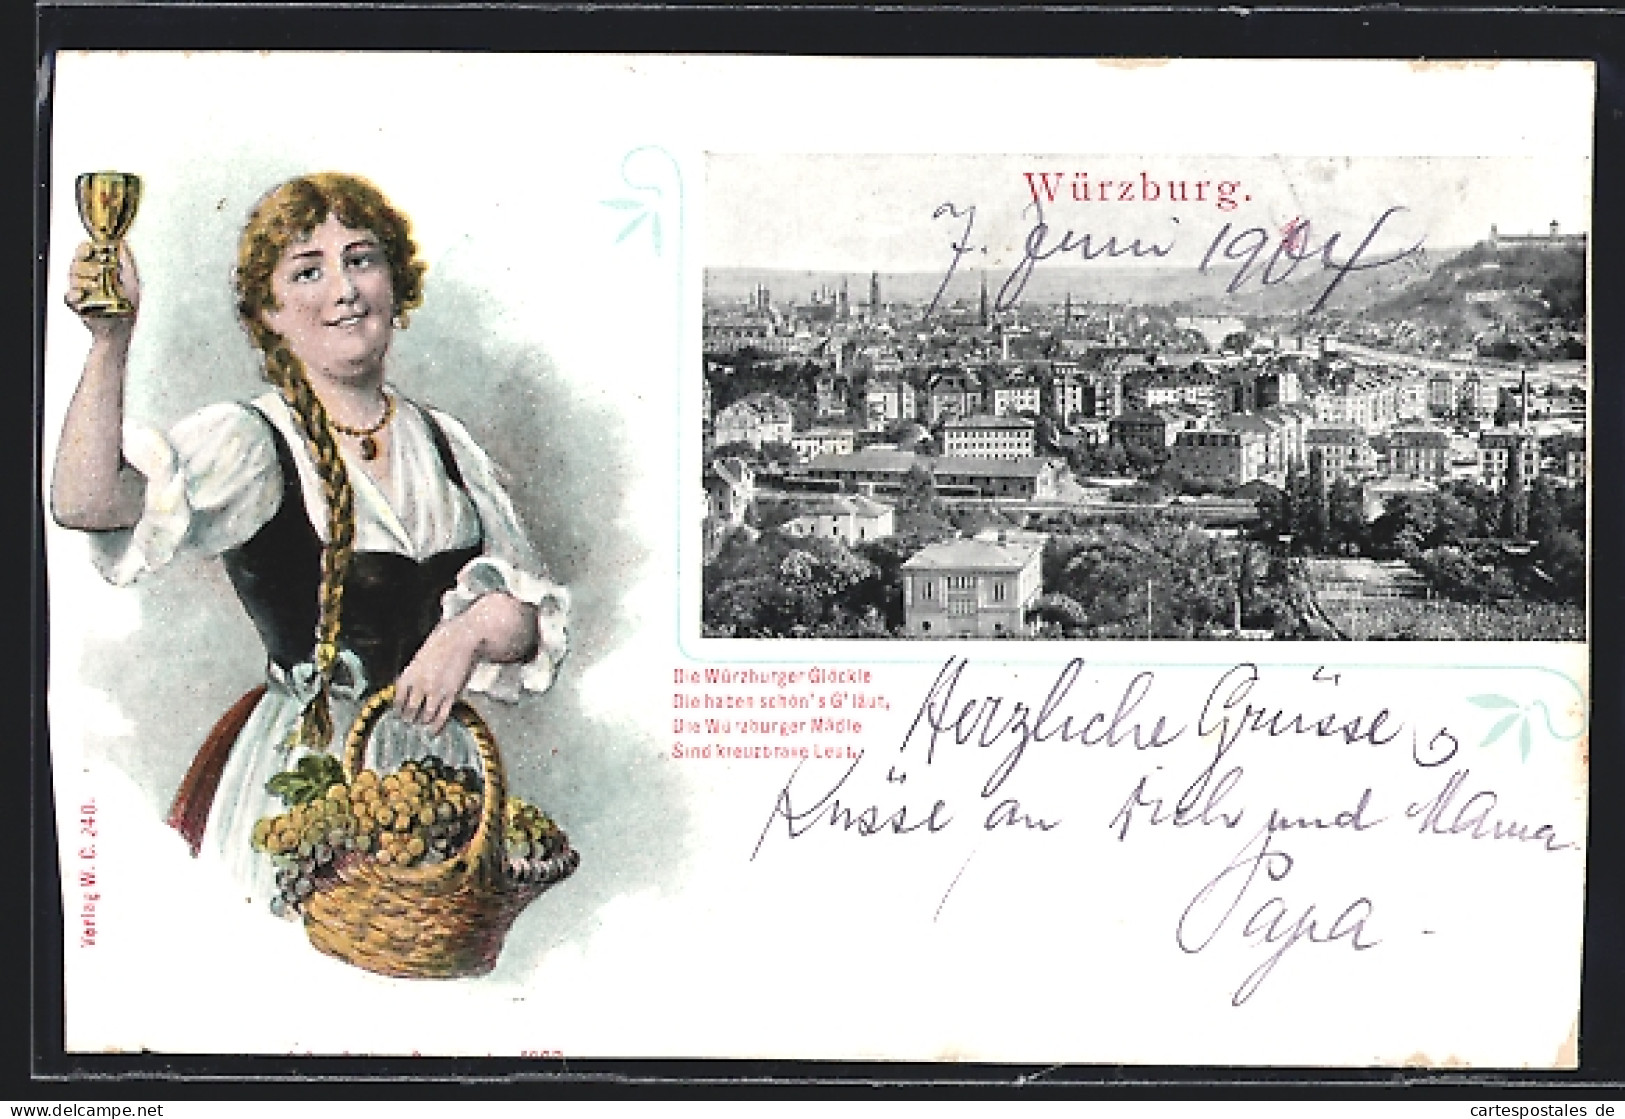 Würzburg.
7. Juni 1904
Die Würzburger Glöckle
Die haben schön's G'läut,
Die Würzburger Mädle
Sind kreuzbrave Leut.
Herzliche Grüsse &
Küsse an Dich und Mama
Papa -
Verlag W. C. 240.
cartespostales de
www.delcampe.net/collections/cartes_postales